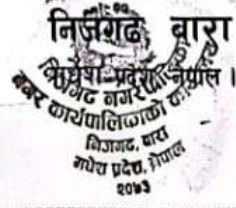 निजगढ बारा
मधेश प्रदेश नेपाल ।
निजगढ नगरपालिका
नगर कार्यपालिकाको कार्यालय
निजगढ, बारा
मधेश प्रदेश, नेपाल
२०७३